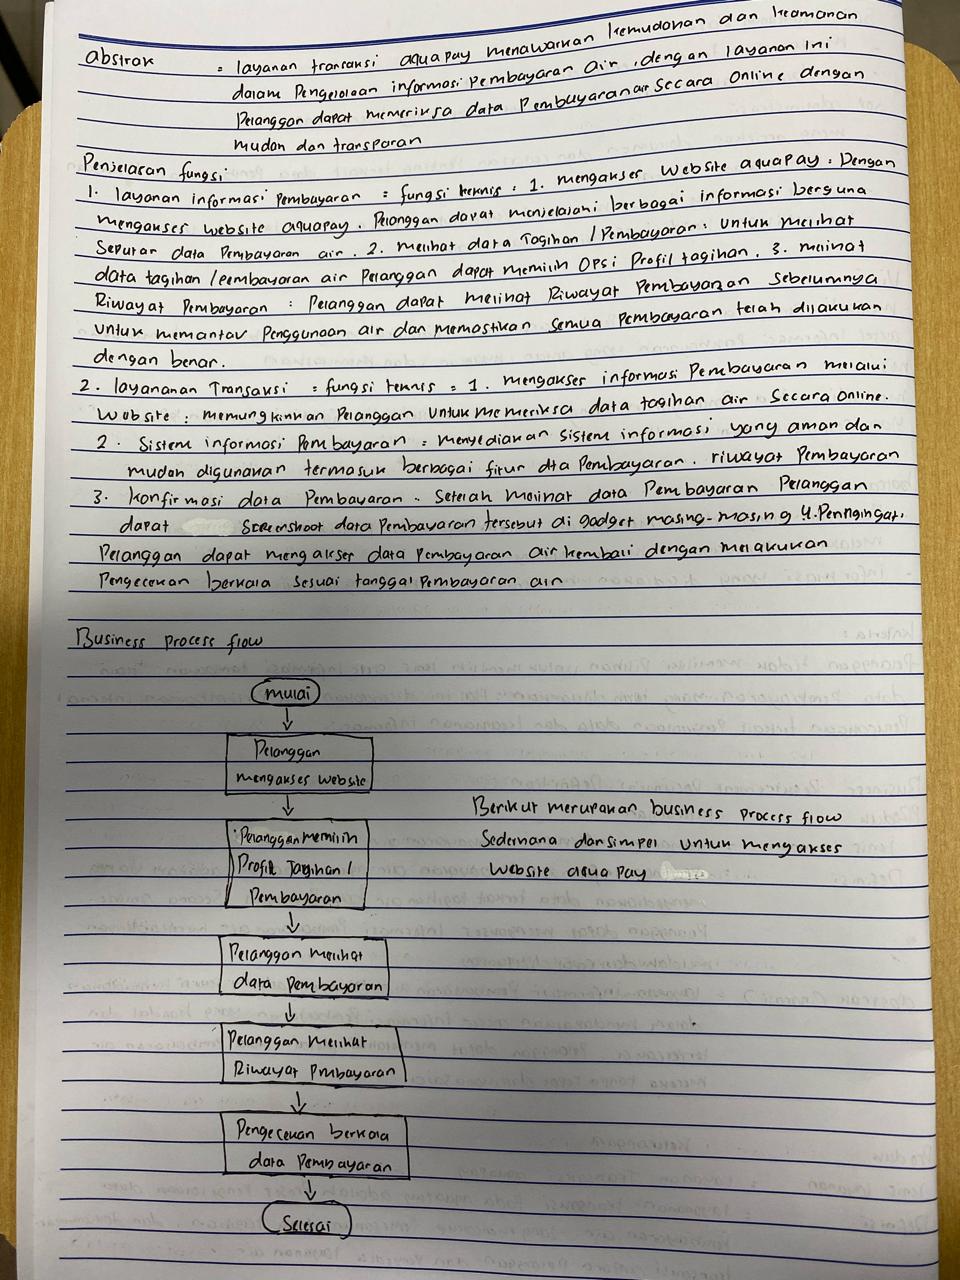 abstrak : layanan transaksi aquapay menawarkan kemudahan dan keamanan
dalam Pengelolaan informasi Pembayaran air, dengan layanan ini
Pelanggan dapat memeriksa data Pembayaran air Secara Online dengan
mudah dan transparan
Penjelasan fungsi
1. layanan informasi Pembayaran : fungsi teknis : 1. mengakses Website aquapay : Dengan
mengakses website aquapay. Pelanggan dapat menjelajahi berbagai informasi berguna
Seputar data Pembayaran air. 2. melihat data Tagihan / Pembayaran : untuk melihat
data tagihan / Pembayaran air Pelanggan dapat memilih OPsi Profil tagihan. 3. melihat
Riwayat Pembayaran : Pelanggan dapat melihat Riwayat Pembayaran Sebelumnya
untuk memantau Penggunaan air dan memastikan Semua Pembayaran telah dilakukan
dengan benar.
2. layananan Transaksi : fungsi teknis : 1. mengakses informasi Pembayaran melalui
Website : memungkinkan Pelanggan untuk memeriksa data tagihan air Secara online.
2. Sistem informasi Pembayaran : menyediakan sistem informasi yang aman dan
mudah digunakan termasuk berbagai fitur dta Pembayaran. riwayat Pembayaran
3. konfirmasi data Pembayaran. Setelah melihat data Pembayaran Pelanggan
dapat Screenshoot data Pembayaran tersebut di gadget masing-masing 4. Penngingat.
Pelanggan dapat mengakses data Pembayaran air kembali dengan melakukan
Pengecekan berkala sesuai tanggal Pembayaran air
Business Process flow
mulai
Pelanggan
mengakses website
Pelanggan memilih
Profil Tagihan /
Pembayaran
Pelanggan melihat
data Pembayaran
Pelanggan melihat
Riwayat Pmbayaran
Pengecekan berkala
data Pembayaran
Selesai
Berikut merupakan business process flow
Sederhana dan simpel untuk mengakses
Website aqua pay